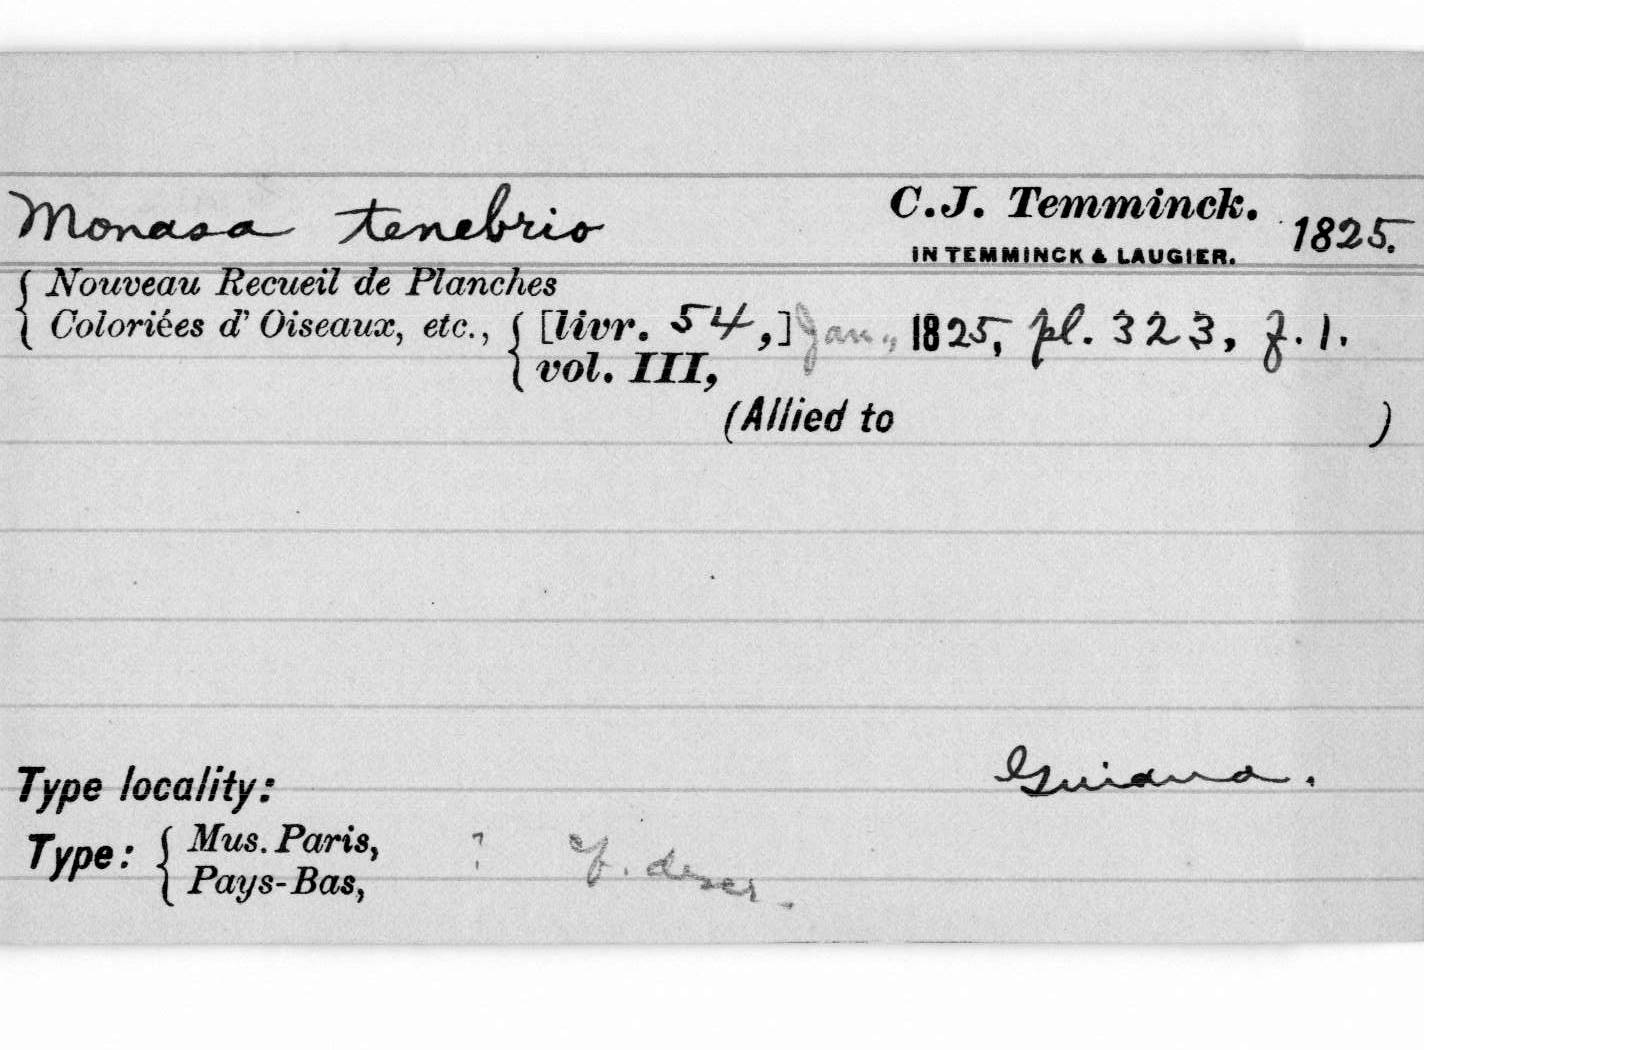 Monasa tenebrio C.J. Temminck. 1825.
IN TEMMINCK & LAUGIER.
{ Nouveau Recueil de Planches
Coloriées d' Oiseaux, etc., { [livr. 54,] Jan., 1825, pl. 323, f. 1.
vol. III,
(Allied to )
Type locality: Guiana.
Type: { Mus. Paris, ? cf. descr.
Pays-Bas,